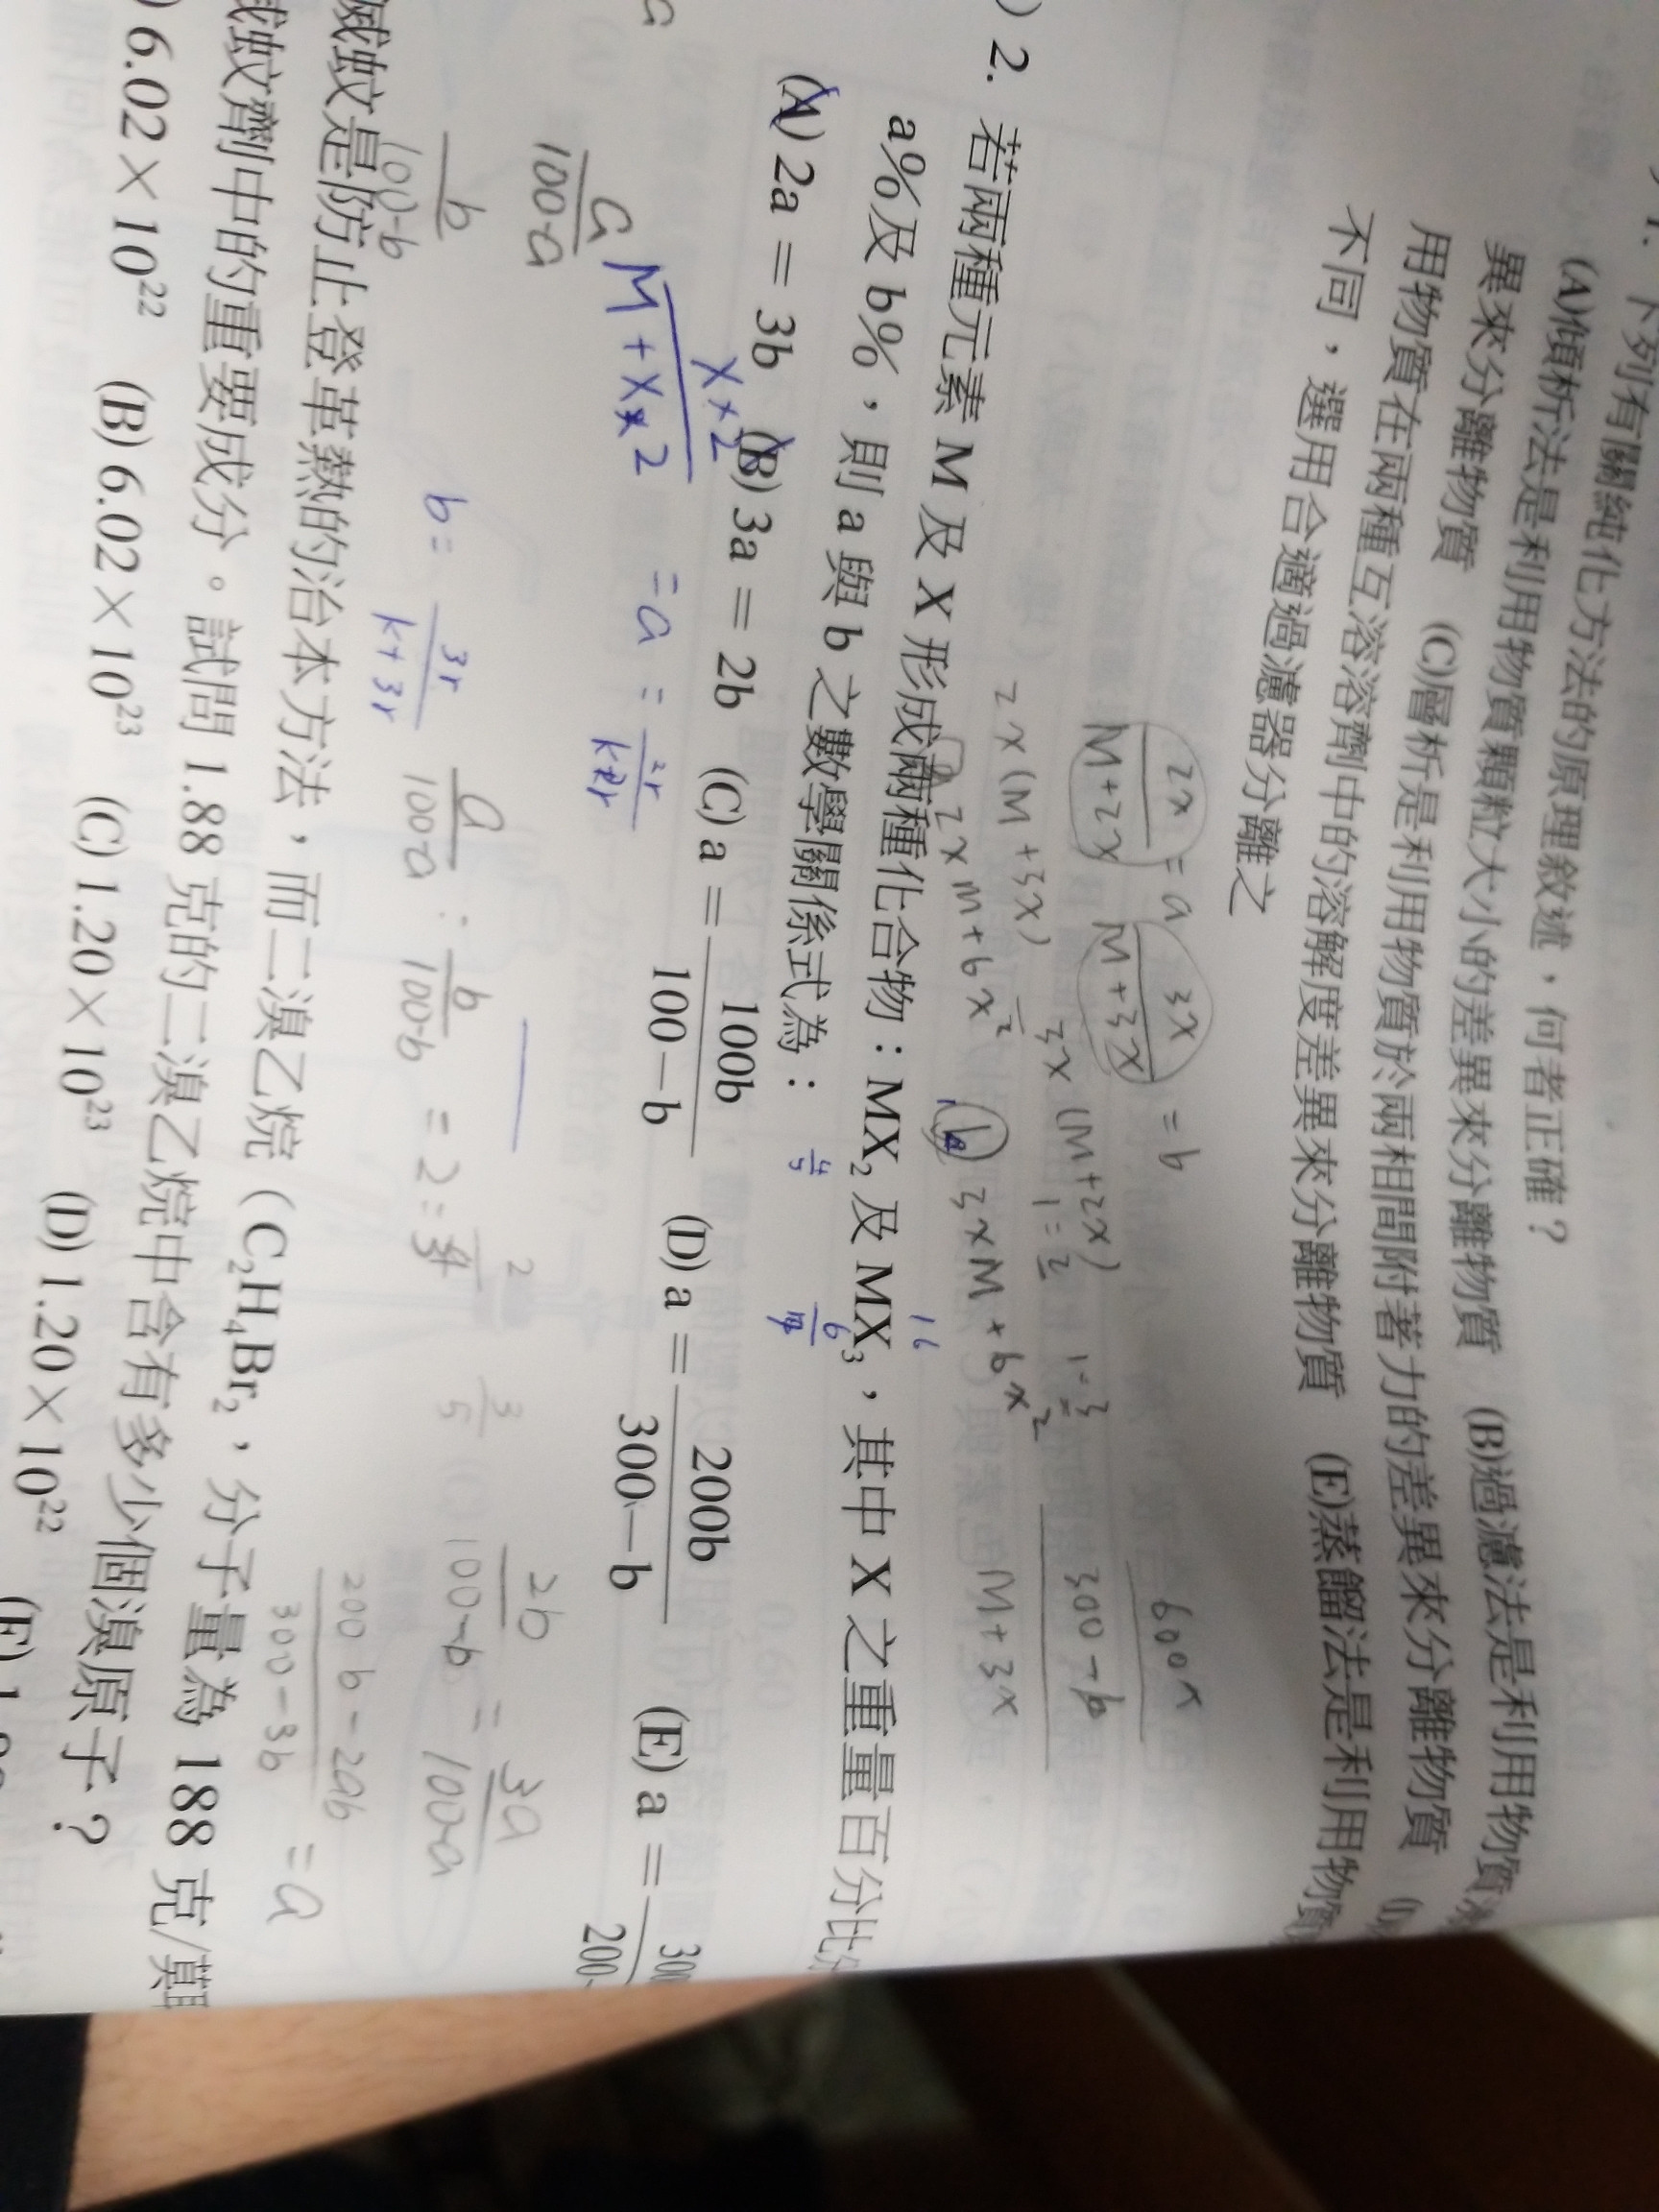 1. 下列有關純化方法的原理敘述，何者正確？
(A)傾析法是利用物質顆粒大小的差異來分離物質 (B)過濾法是利用物質
異來分離物質 (C)層析是利用物質於兩相間附著力的差異來分離物質
用物質在兩種互溶溶劑中的溶解度差異來分離物質 (E)蒸餾法是利用物質
不同，選用合適過濾器分離之
2x
M+2x
= a
3x
M+3x
= b
600x
2x(M+3x)
3x(M+2x)
300-b
2xM+6x²
3xM+6x²
M+3x
) 2. 若兩種元素 M 及 X 形成兩種化合物：MX₂ 及 MX₃，其中 X 之重量百分比
16
a%及 b%，則 a 與 b 之數學關係式為：
(A) 2a = 3b (B) 3a = 2b (C) a = 100b / 100-b (D) a = 200b / 300-b (E) a = 
X×2
M+X×2
= a = 2r
a
100-a
b
100-b
b = 3r / k+3r
a / 100-a : b / 100-b = 2 : 3
3/5
2b / 100-b = 3a / 100-a
200b-2ab / 300-3b = a
滅蚊是防止登革熱的治本方法，而二溴乙烷（C₂H₄Br₂，分子量為 188 克/莫耳
滅蚊劑中的重要成分。試問 1.88 克的二溴乙烷中含有多少個溴原子？
) 6.02×10²² (B) 6.02×10²³ (C) 1.20×10²³ (D) 1.20×10²²